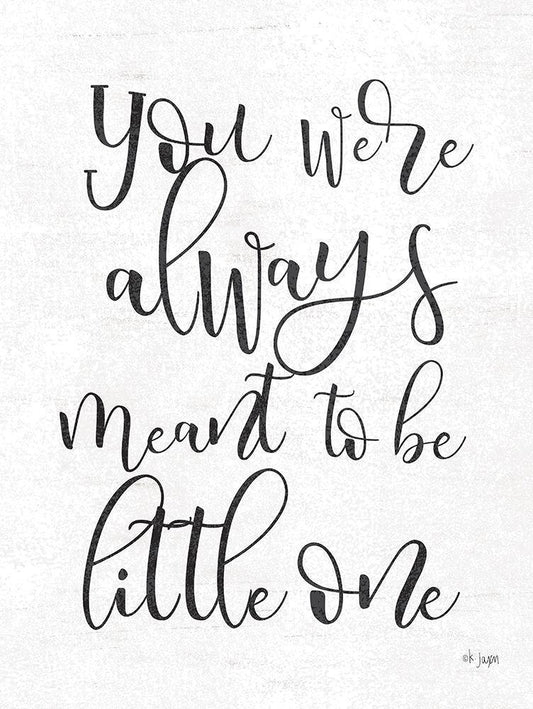 you were
always
meant to be
little one
©K Jaxn